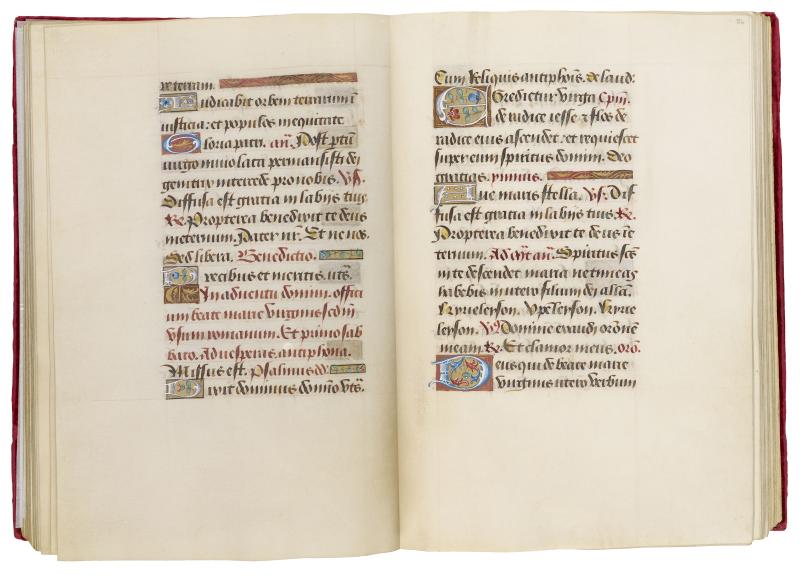 re terram.
Iudicabit orbem terrarum i
iusticia: et populos in equitate
Gloria patri. añ. Post ptũ
uirgo inuiolata permansisti dei
genitrix intercede pro nobis. Vs.
Diffusa est gratia in labijs tuis
Rx. Propterea benedixit te deus
in eternum. Pater nr. Et ne nos.
Sed libera. Benedictio.
Precibus et meritis. uts.
In aduentu domini. offici
um beate marie uirginis scdm
usum romanum. Et primo sab
bato. Ad uesperas. antiphona.
Missus est. Psalmus dd.
Dixit dominus domino uts.
Cum reliquis antiphoñis. de laud:
Egredietur uirga Cplm.
de radice iesse: & flos de
radice eius ascendet: et requiescet
super eum spiritus domini. Deo
gratias. ymnus.
Aue maris stella. Vs. Dif
fusa est gratia in labijs tuis. Rx.
Propterea benedixit te deus in e
ternum. Ad mag. añ. Spiritus scs
in te descendet maria ne timeas
habebis in utero filium dei alla.
Kyrieleyson. Xpeleyson. Kyrie
leyson. Vs Domine exaudi oroñe
meam. Rx. Et clamor meus. oro.
Deus qui de beate marie
uirginis utero uerbum